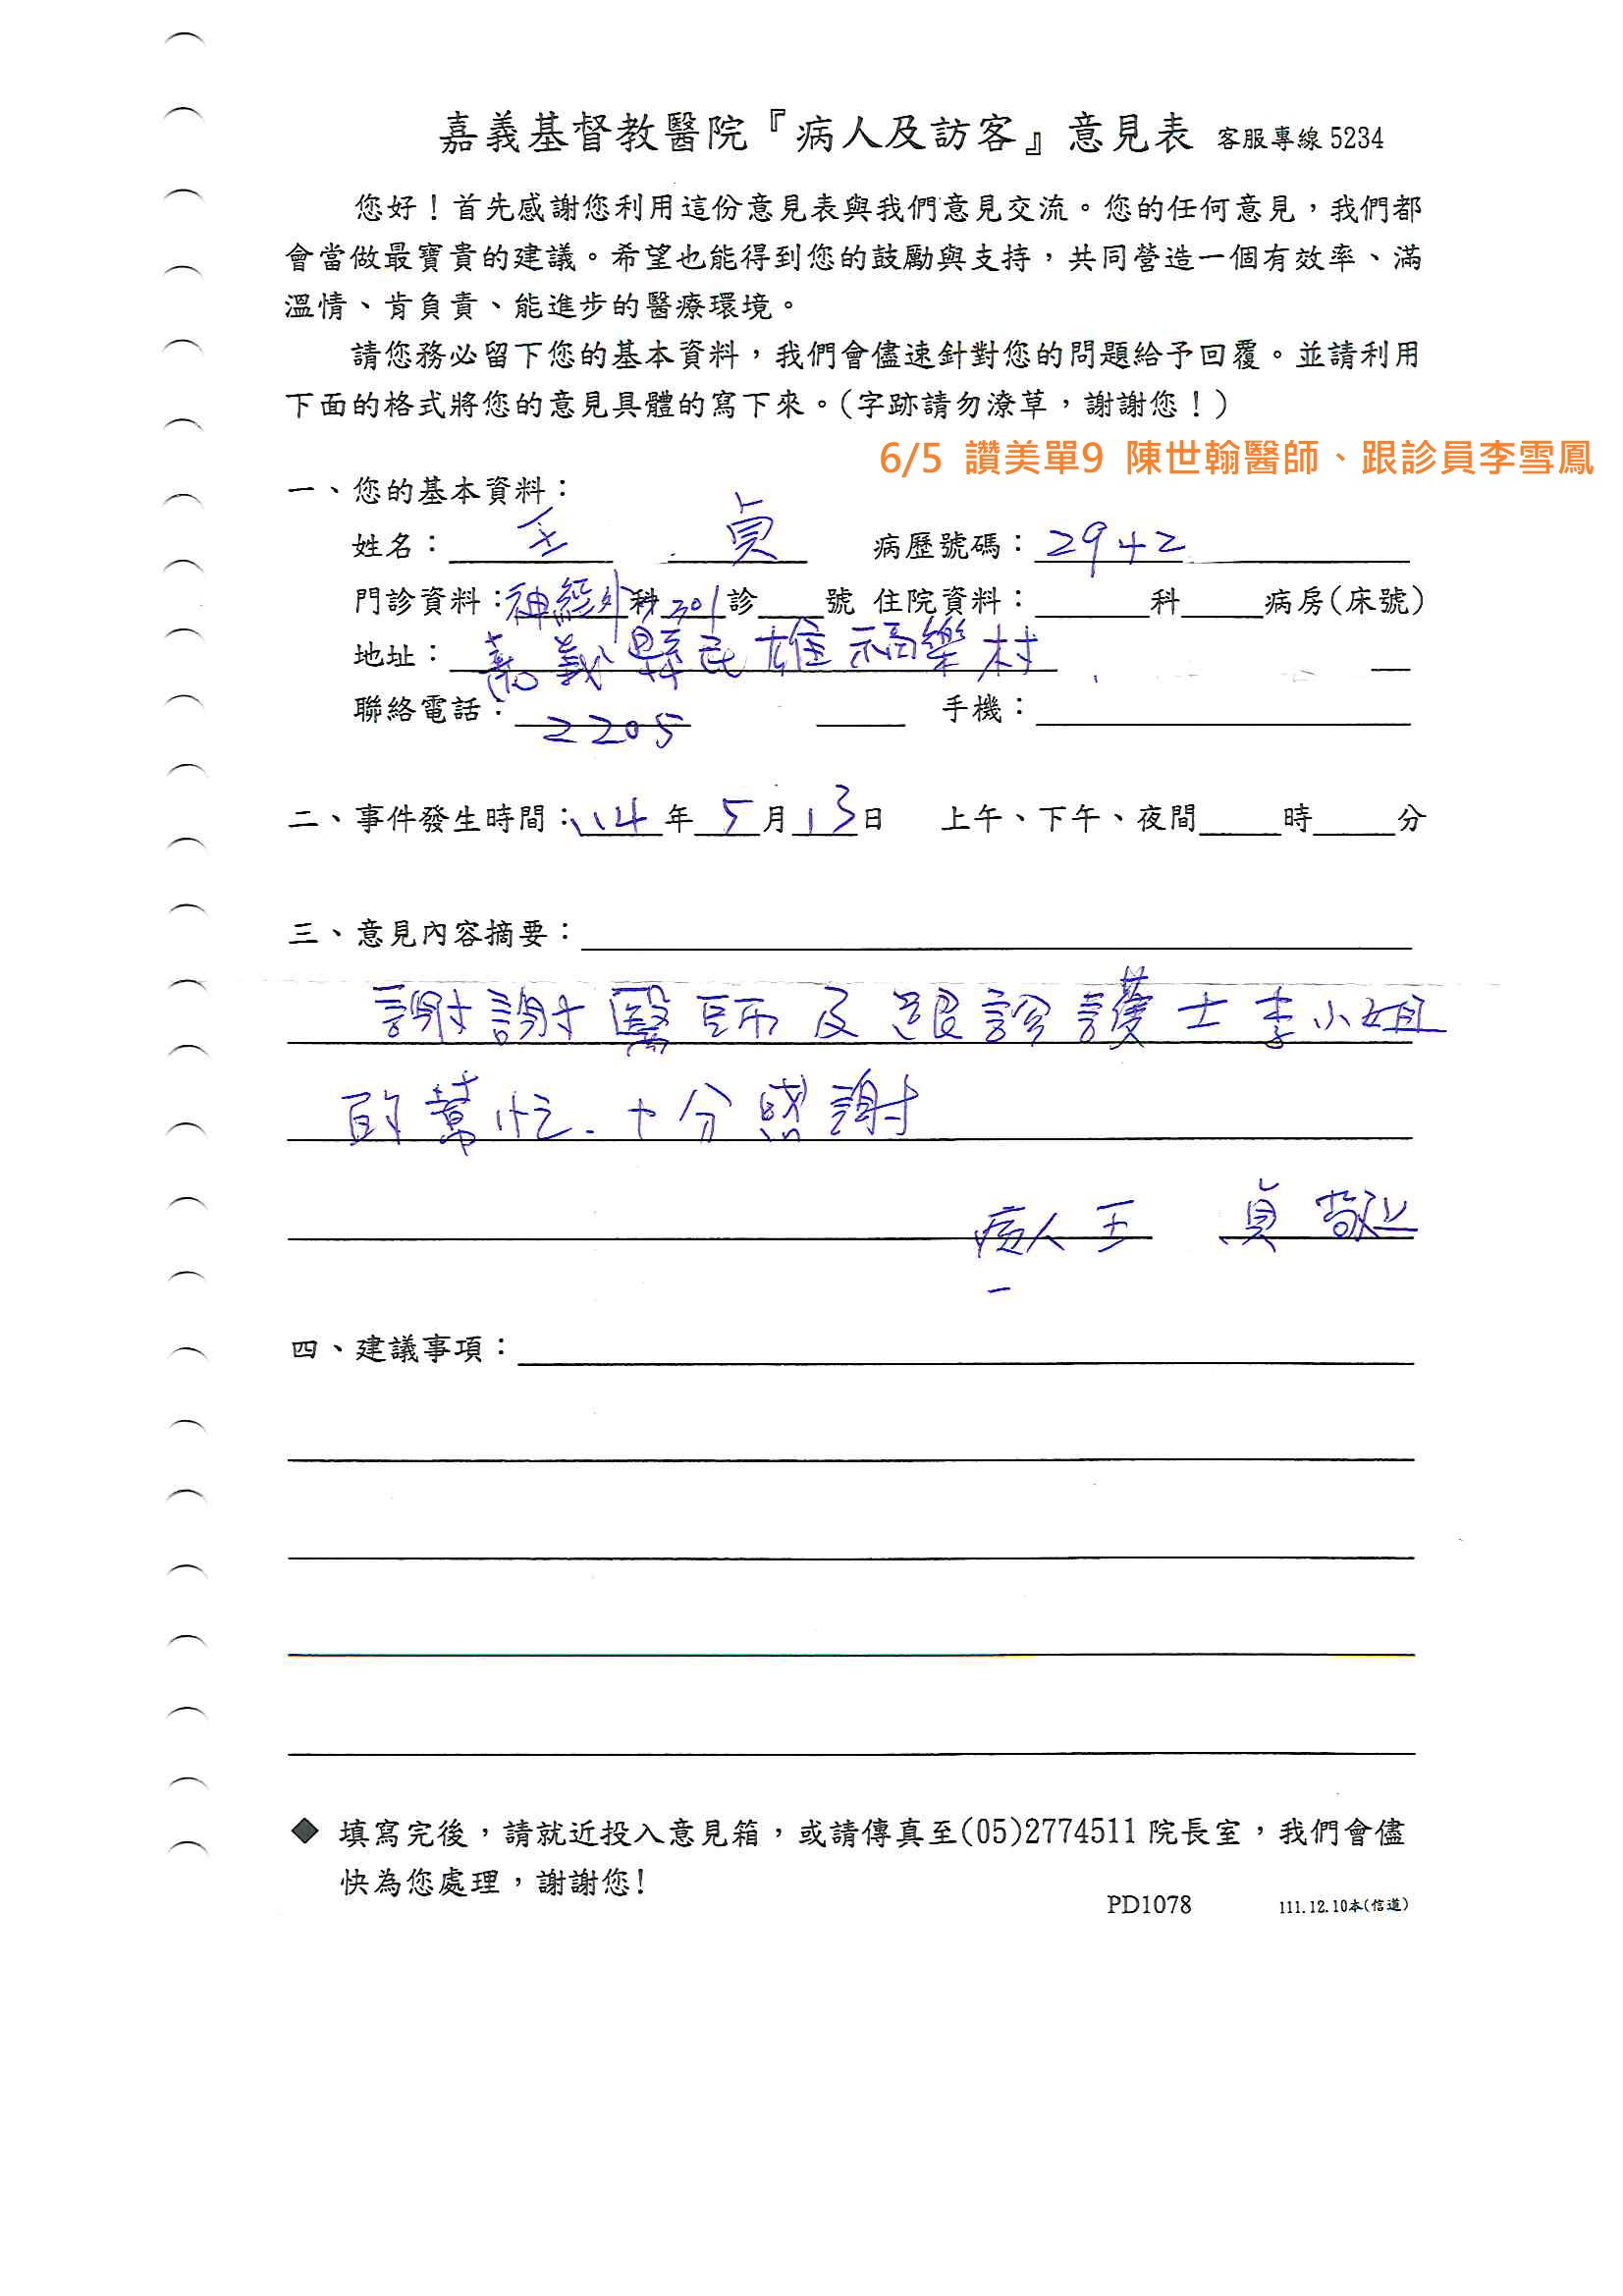 嘉義基督教醫院『病人及訪客』意見表 客服專線 5234
您好！首先感謝您利用這份意見表與我們意見交流。您的任何意見，我們都
會當做最寶貴的建議。希望也能得到您的鼓勵與支持，共同營造一個有效率、滿
溫情、肯負責、能進步的醫療環境。
請您務必留下您的基本資料，我們會儘速針對您的問題給予回覆。並請利用
下面的格式將您的意見具體的寫下來。(字跡請勿潦草，謝謝您！)
6/5 讚美單9 陳世翰醫師、跟診員李雪鳳
一、您的基本資料：
姓名：王 貞 病歷號碼：2942
門診資料：神經外科 301 診 號 住院資料： 科 病房(床號)
地址：嘉義縣民雄福樂村
聯絡電話：2205 手機：
二、事件發生時間：114年5月13日 上午、下午、夜間 時 分
三、意見內容摘要：
謝謝醫師及跟診護士李小姐
的幫忙. 十分感謝
病人王 貞 敬上
四、建議事項：
◆ 填寫完後，請就近投入意見箱，或請傳真至(05)2774511 院長室，我們會儘
快為您處理，謝謝您!
PD1078 111.12.10本(信道)